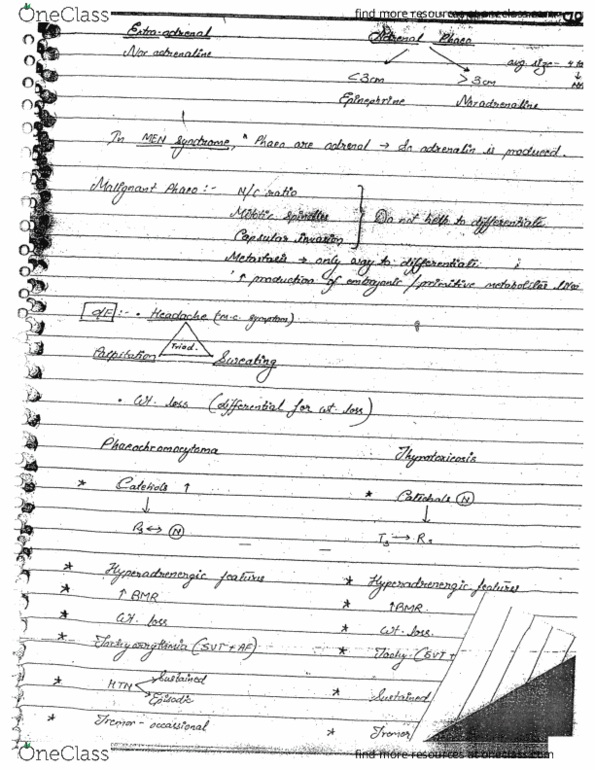 OneClass
find more resources at oneclass.com
Extra-adrenal Adrenal Phaeo
Nor adrenaline avg. size -
<3cm >3cm
Epinephrine Noradrenaline
In MEN syndrome, * Phaeo are adrenal → So adrenalin is produced.
Malignant Phaeo :- N/C ratio
Mitotic spindles Do not help to differentiate
Capsular invasion
Metastasis → only way to differentiate
↑ production of embryonic / primitive metabolites
C/F :- • Headache (m.c. symptom)
Triad.
Palpitation Sweating
• Wt. loss (differential for wt. loss)
Phaeochromocytoma Thyrotoxicosis
* Catehols ↑ * Catichols N
↓ ↓
↔ N T3 → R
* Hyperadrenergic features * Hyperadrenergic features
* ↑ BMR * ↑BMR.
* Wt. loss * Wt. loss.
* Tachyarrythmia (SVT + AF) * Tachy (SVT +
* HTN Sustained * Sustained
Episodic
* Tremor - occassional * Tremor
OneClass
find more resources at oneclass.com